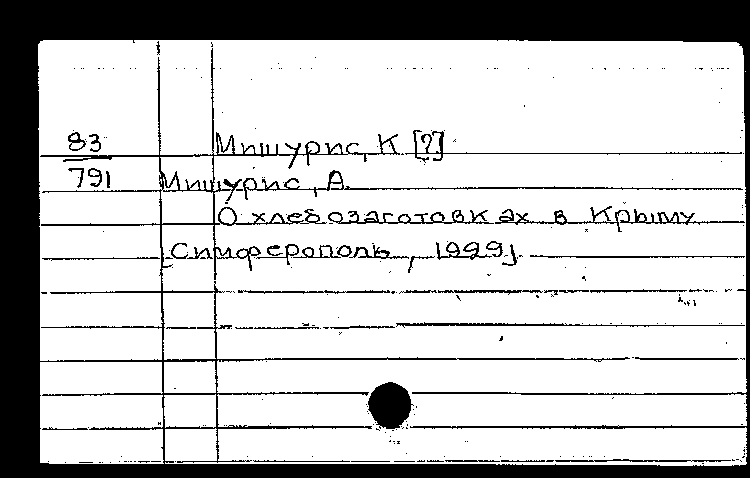 83 Мишурис, К [?]
791 Мишурис, А.
О хлебозаготовках в Крыму
[Симферополь, 1929]